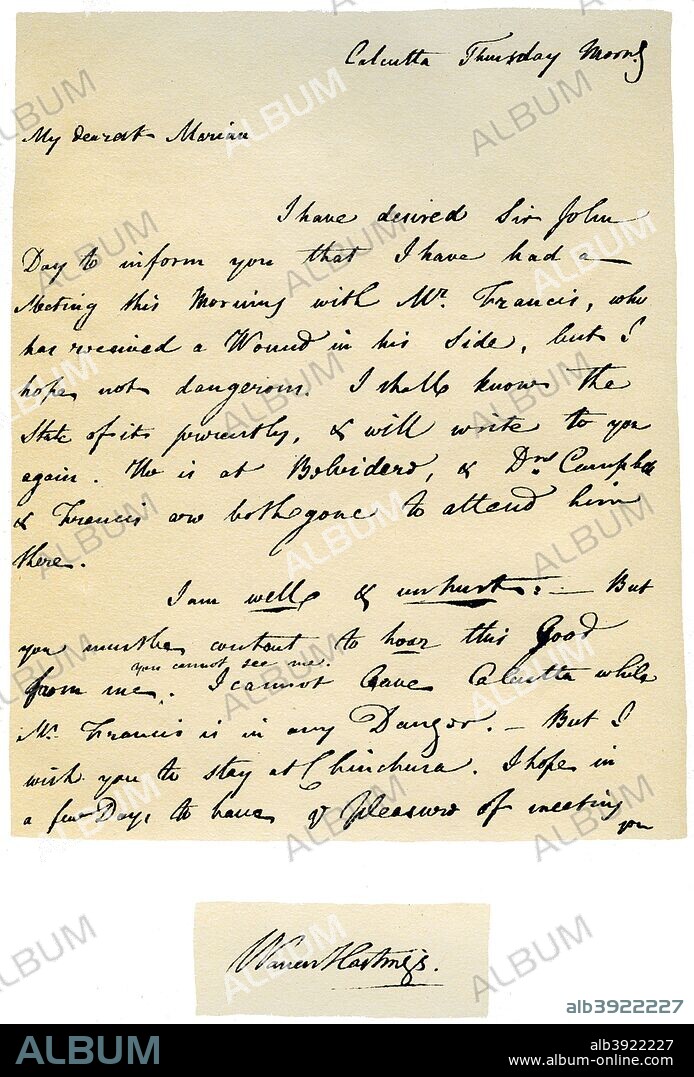 Calcutta Thursday Morn.g
My dearest Marian
I have desired Sir John
Day to inform you that I have had a
Meeting this Morning with Mr. Francis, who
has received a Wound in his Side, but I
hope not dangerous. I shall know the
State of it presently, & will write to you
again. He is at Belvidere, & Drs Campbell
& Francis are both gone to attend him
there.
I am well & unhurt: — But
you must be content to hear this Good
you cannot see me.
from me. I cannot leave Calcutta while
Mr. Francis is in any Danger. — But I
wish you to stay at Chinchura. I hope in
a few Days to have ye Pleasure of meeting
you
Warren Hastings.
alb3922227
ALBUM
alb3922227
www.album-online.com